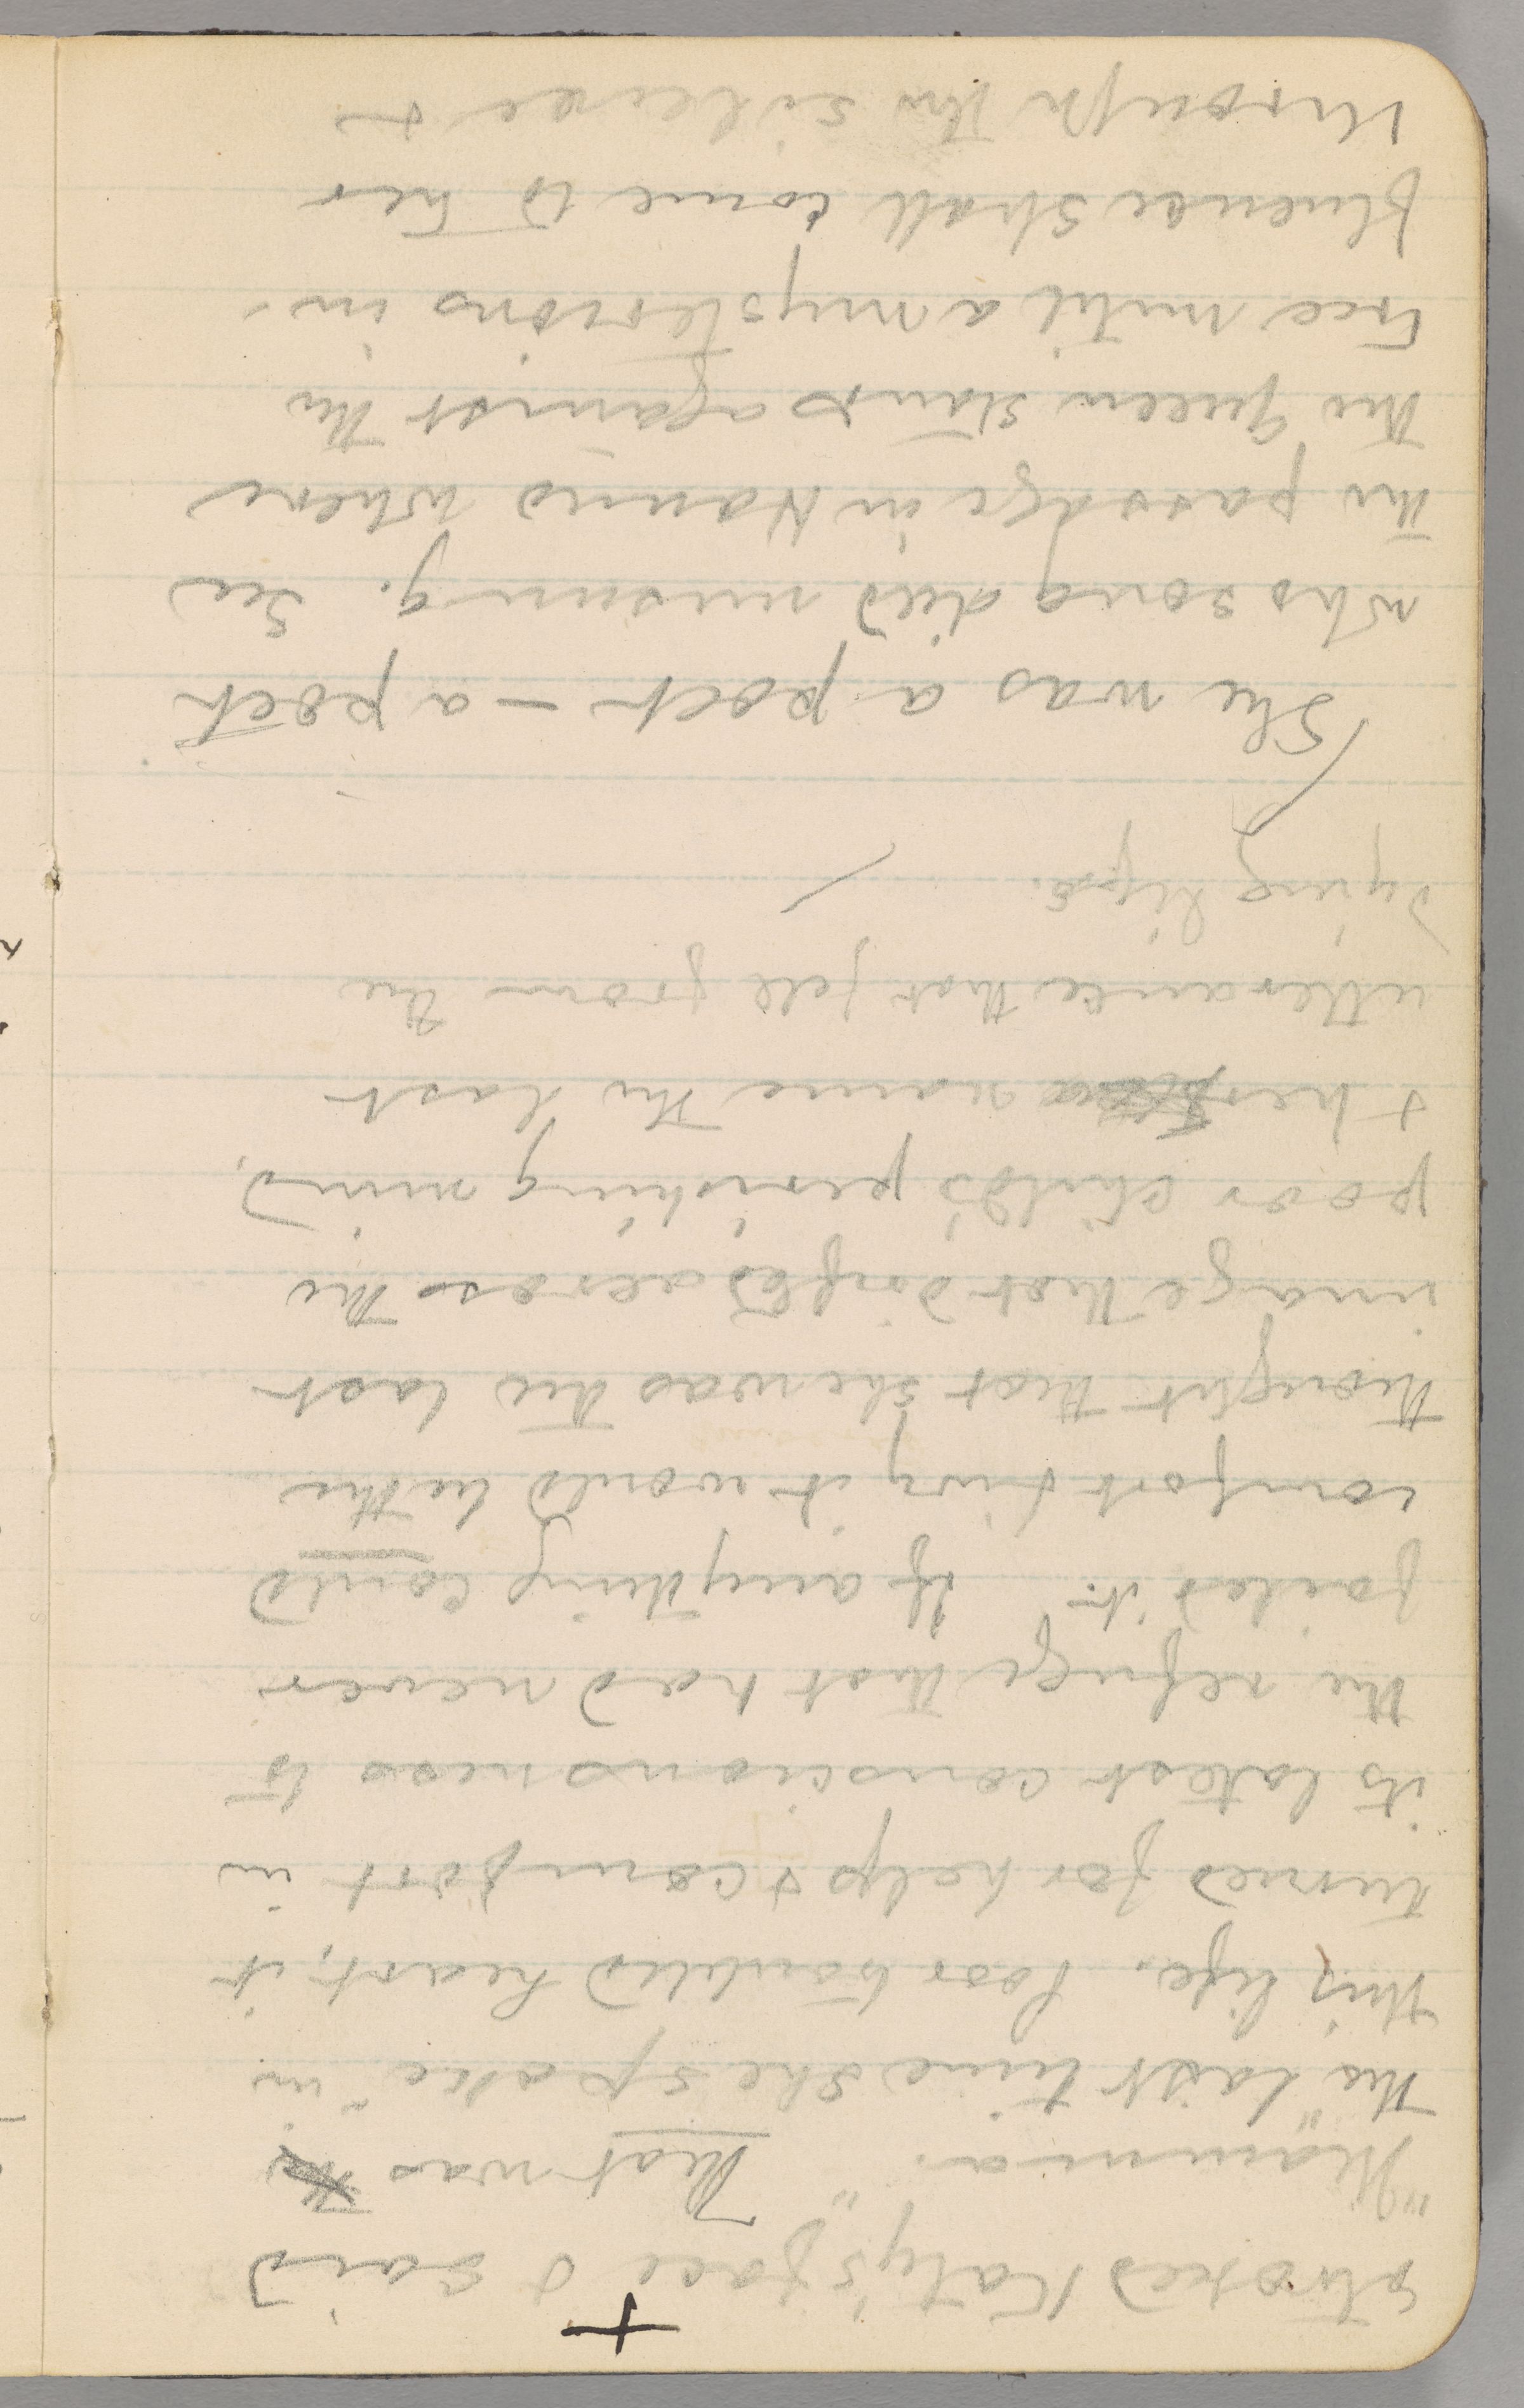 +
stroked Katy's face & said
"Mamma." That was the
the "last time she spoke" in
this life. Poor troubled heart, it
turned for help & comfort in
its latest consciousness to
the refuge that had never
failed it. If anything could
comfort Livy it would be the
thought that she was the last
image that drifted across the
poor child's perishing mind,
& her name the last
utterance that fell from the
dying lips.
She was a poet — a poet
whose song died unsung. See
the passage in where
the Queen stands against the
tree until a mysterious in-
fluence shall come to her
through the silence &